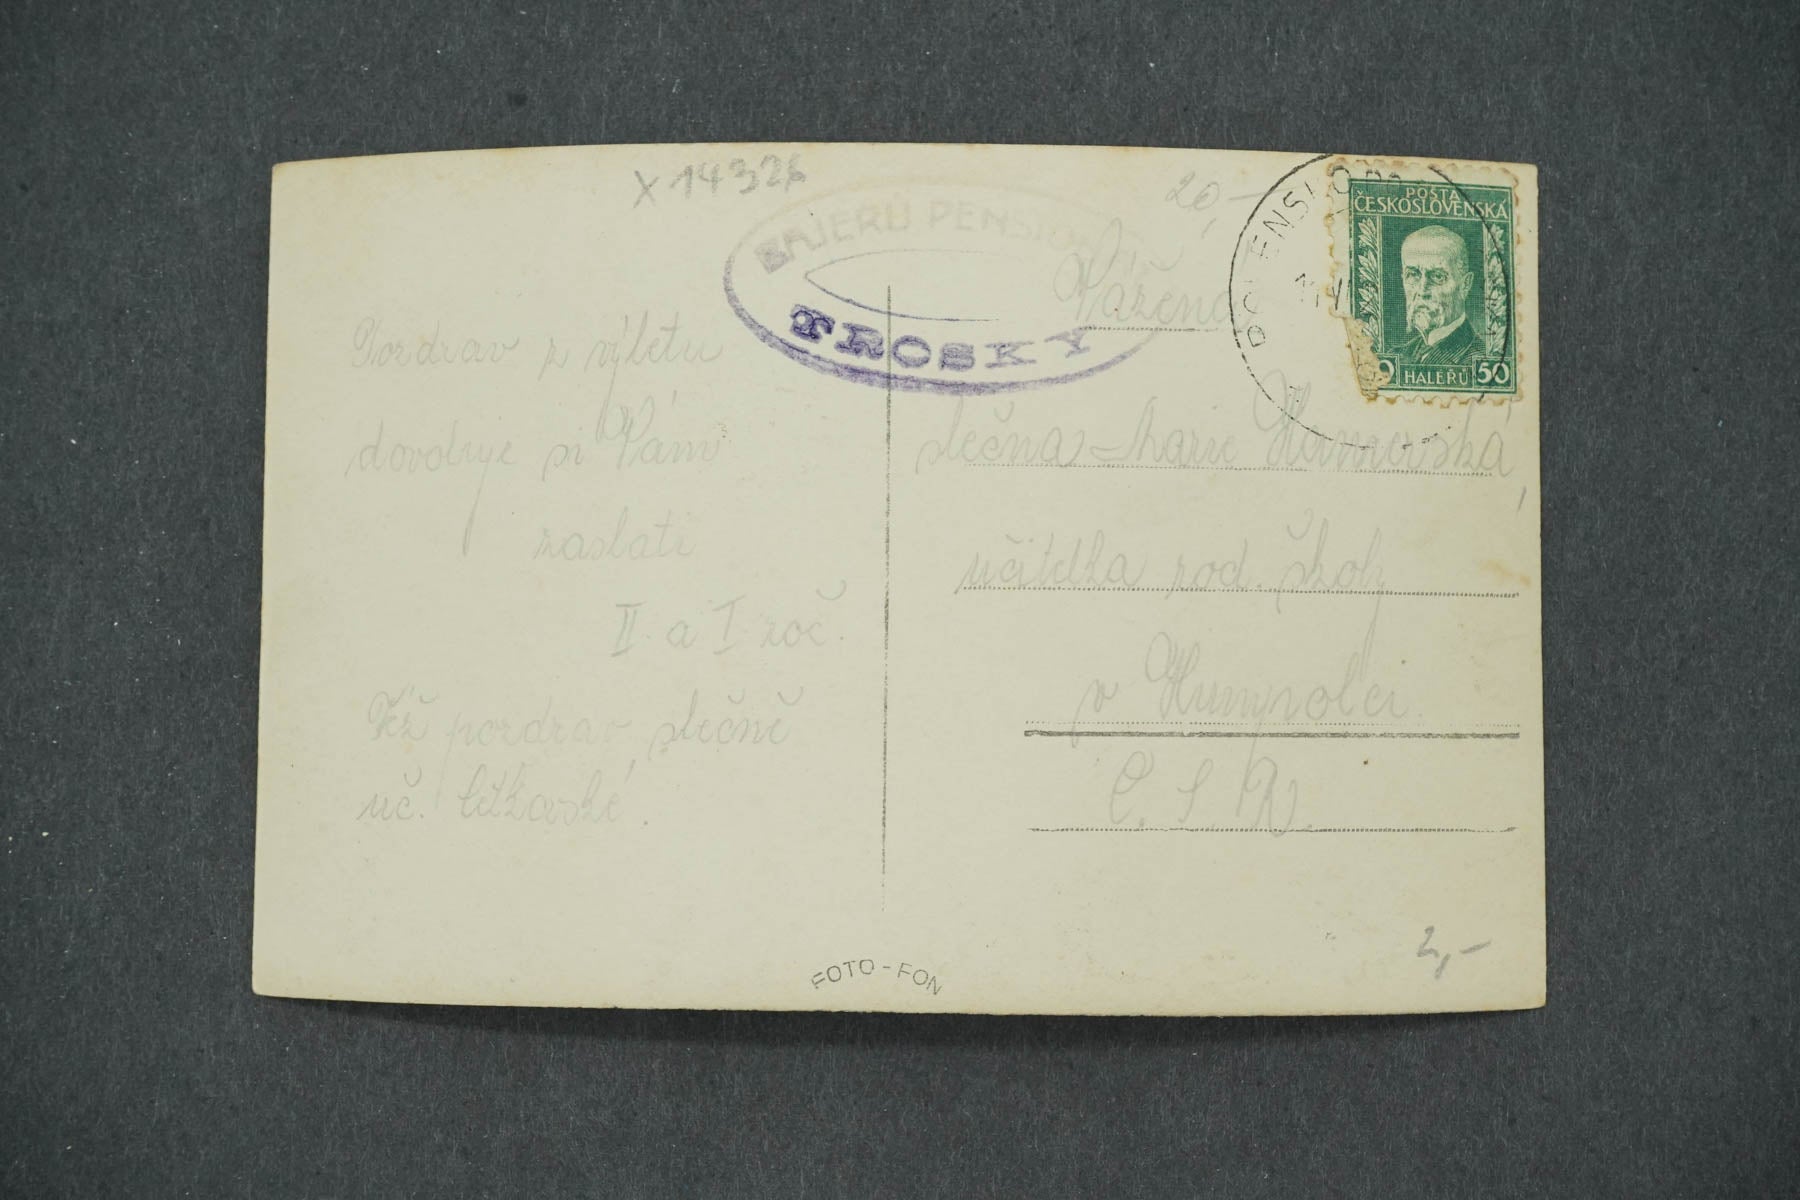 x 14326
20,-
BAJERŮ PENSION
TROSKY
POŠTA
ČESKOSLOVENSKÁ
HALÉŘŮ 50
Pozdrav z výletu
dovoluje si Vám
zaslati
II. a I. roč.
Též pozdrav slečně
uč.
Vážená
slečna Marie
učitelka rod. školy
v Humpolci
Č. S. R.
2,-
FOTO-FON